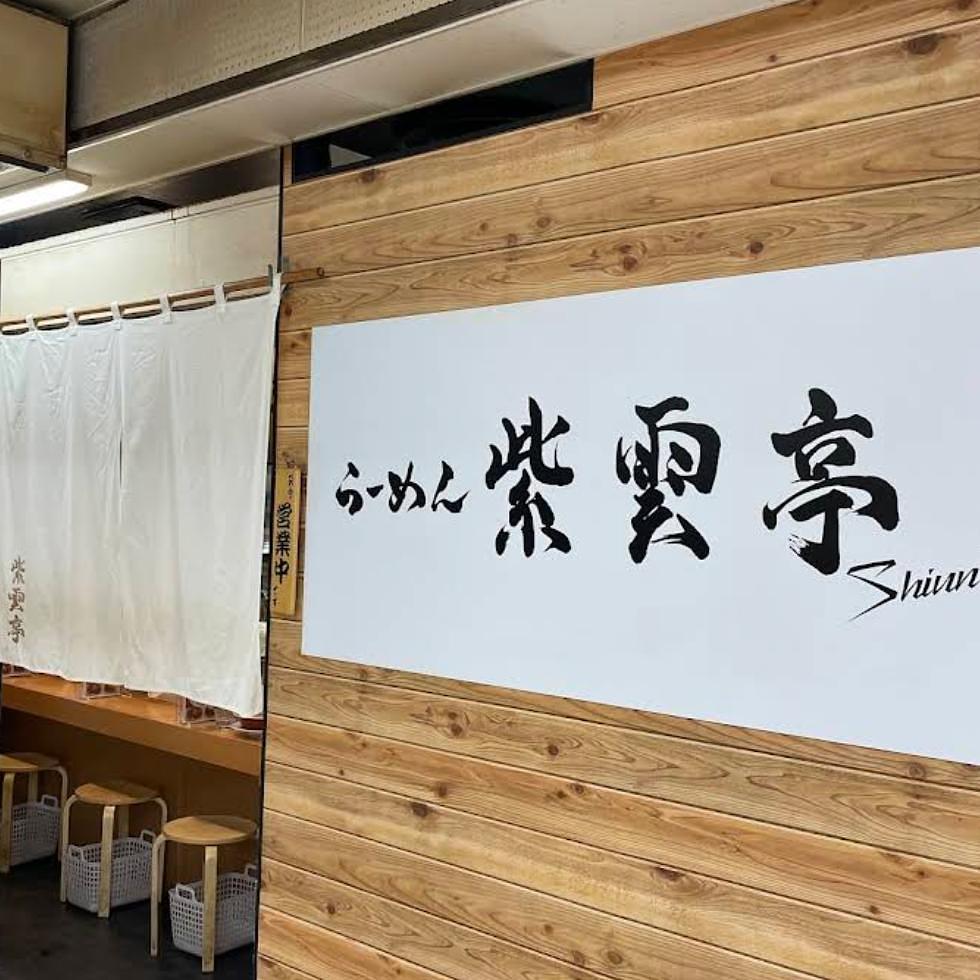 らーめん 紫雲亭
Shiun
営業中
紫雲亭